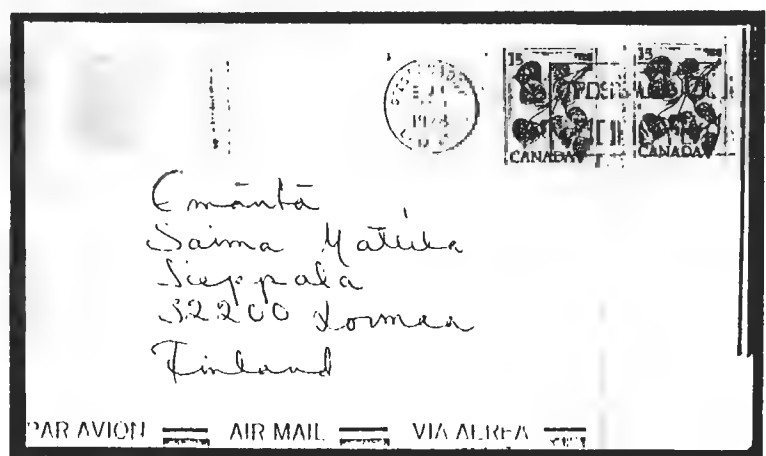 15 15
1978
CANADA CANADA
Emäntä
Saima Mattila
Sieppala
32200 Loimaa
Finland
PAR AVION AIR MAIL VIA AEREA